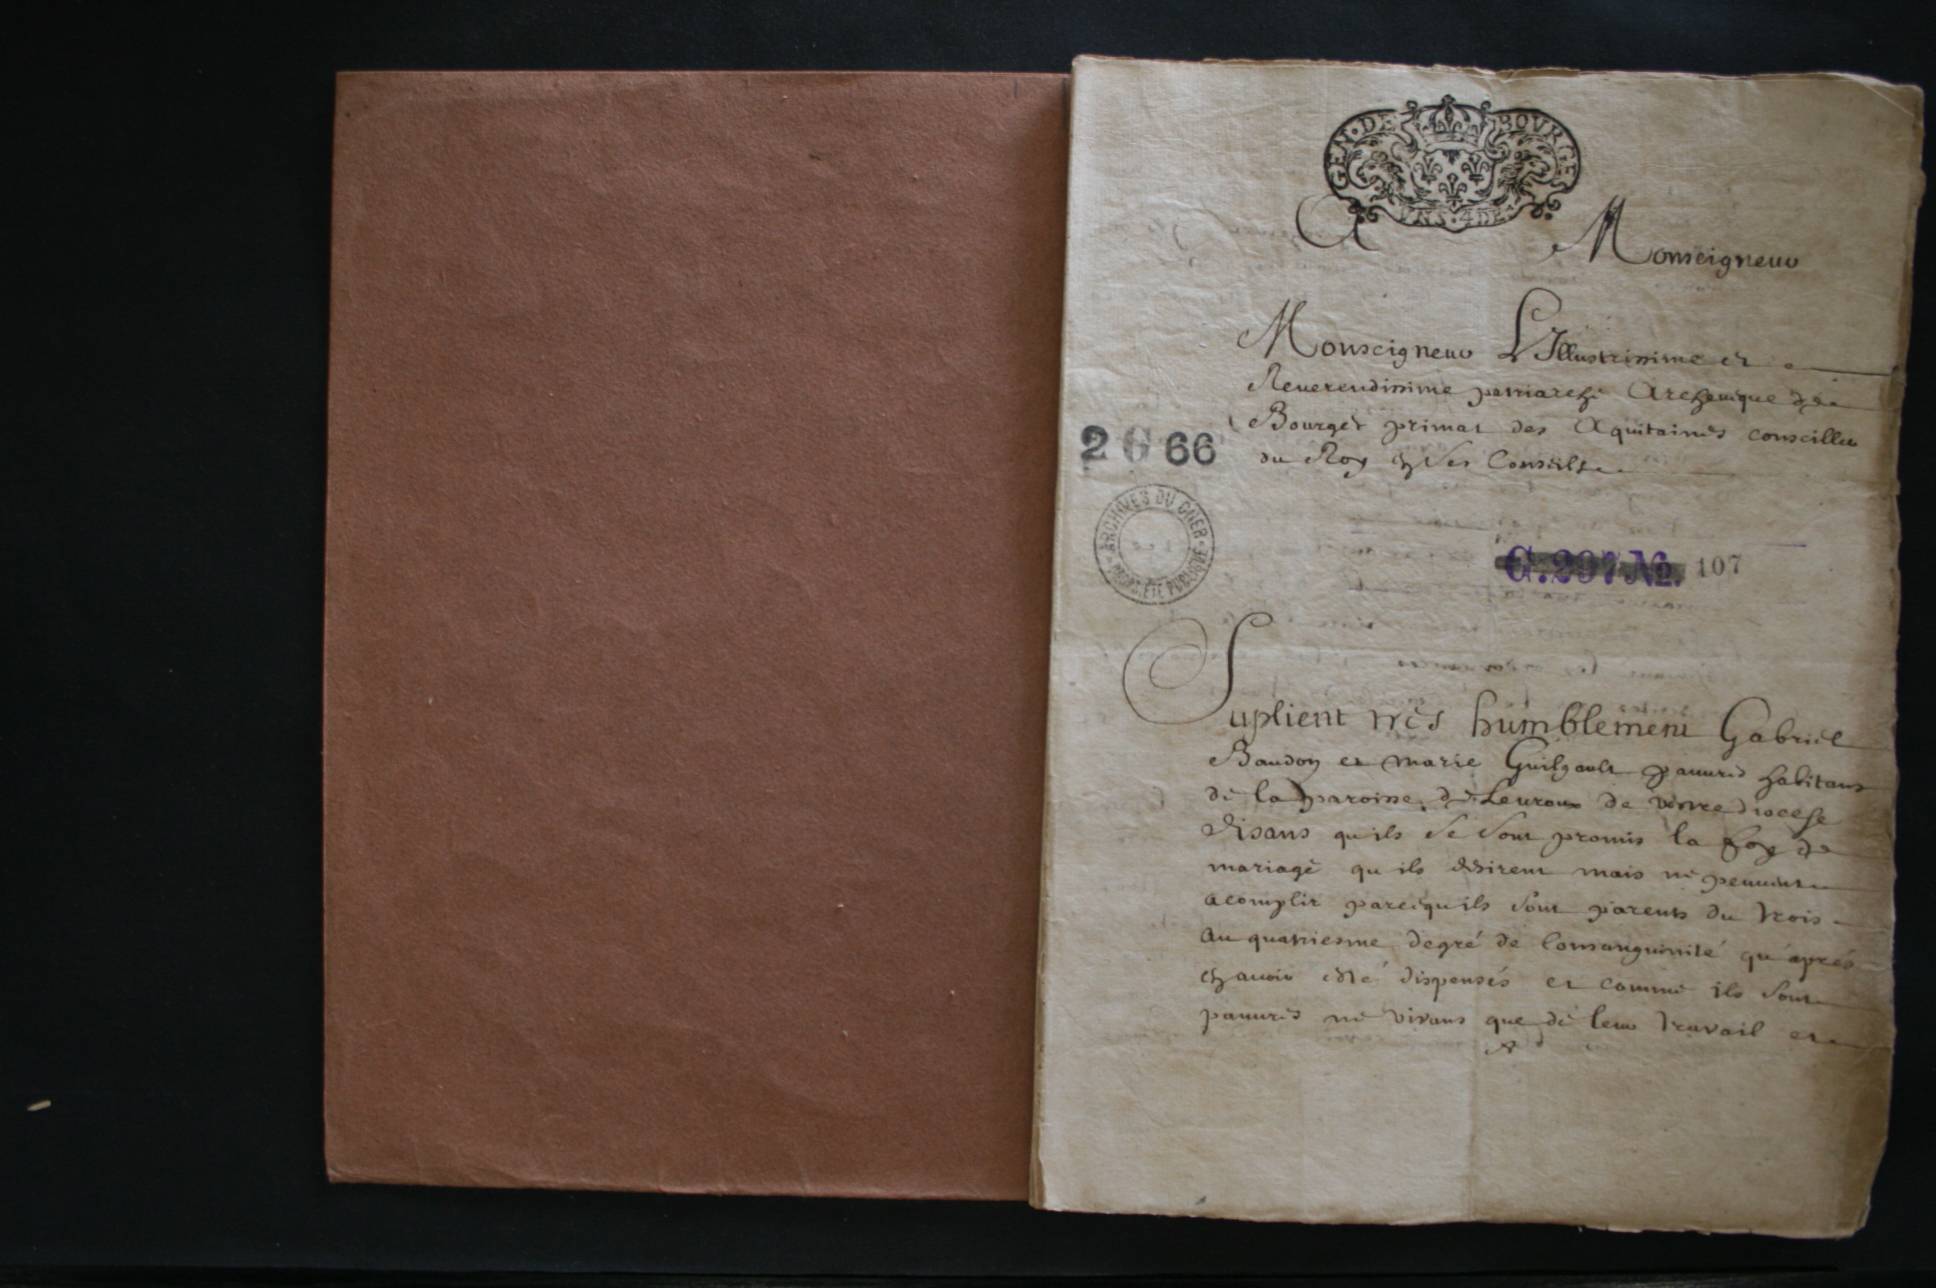 GEN·DE BOVRGE
A Monseigneur
Monseigneur L'Illustrissime et
Reuerendissime patriarche Archeueque de
Bourges primat des Aquitaines conseiller
du Roy en ses Conseils
2 G 66
ARCHIVES DU CHER
PROPRIÉTÉ PUBLIQUE
G.297 No. 107
Suplient tres humblement Gabriel
Baudon et marie Guilgault pauures habitans
de la paroisse de Leuroux de vostre diocese
disans qu'ils se sont promis la foy de
mariage qu'ils desirent mais ne peuuent
acomplir parcequ'ils sont parents du trois
au quatriesme degré de consanguinité qu'aprés
en auoir esté dispensés et comme ils sont
pauures ne vivans que de leur travail et